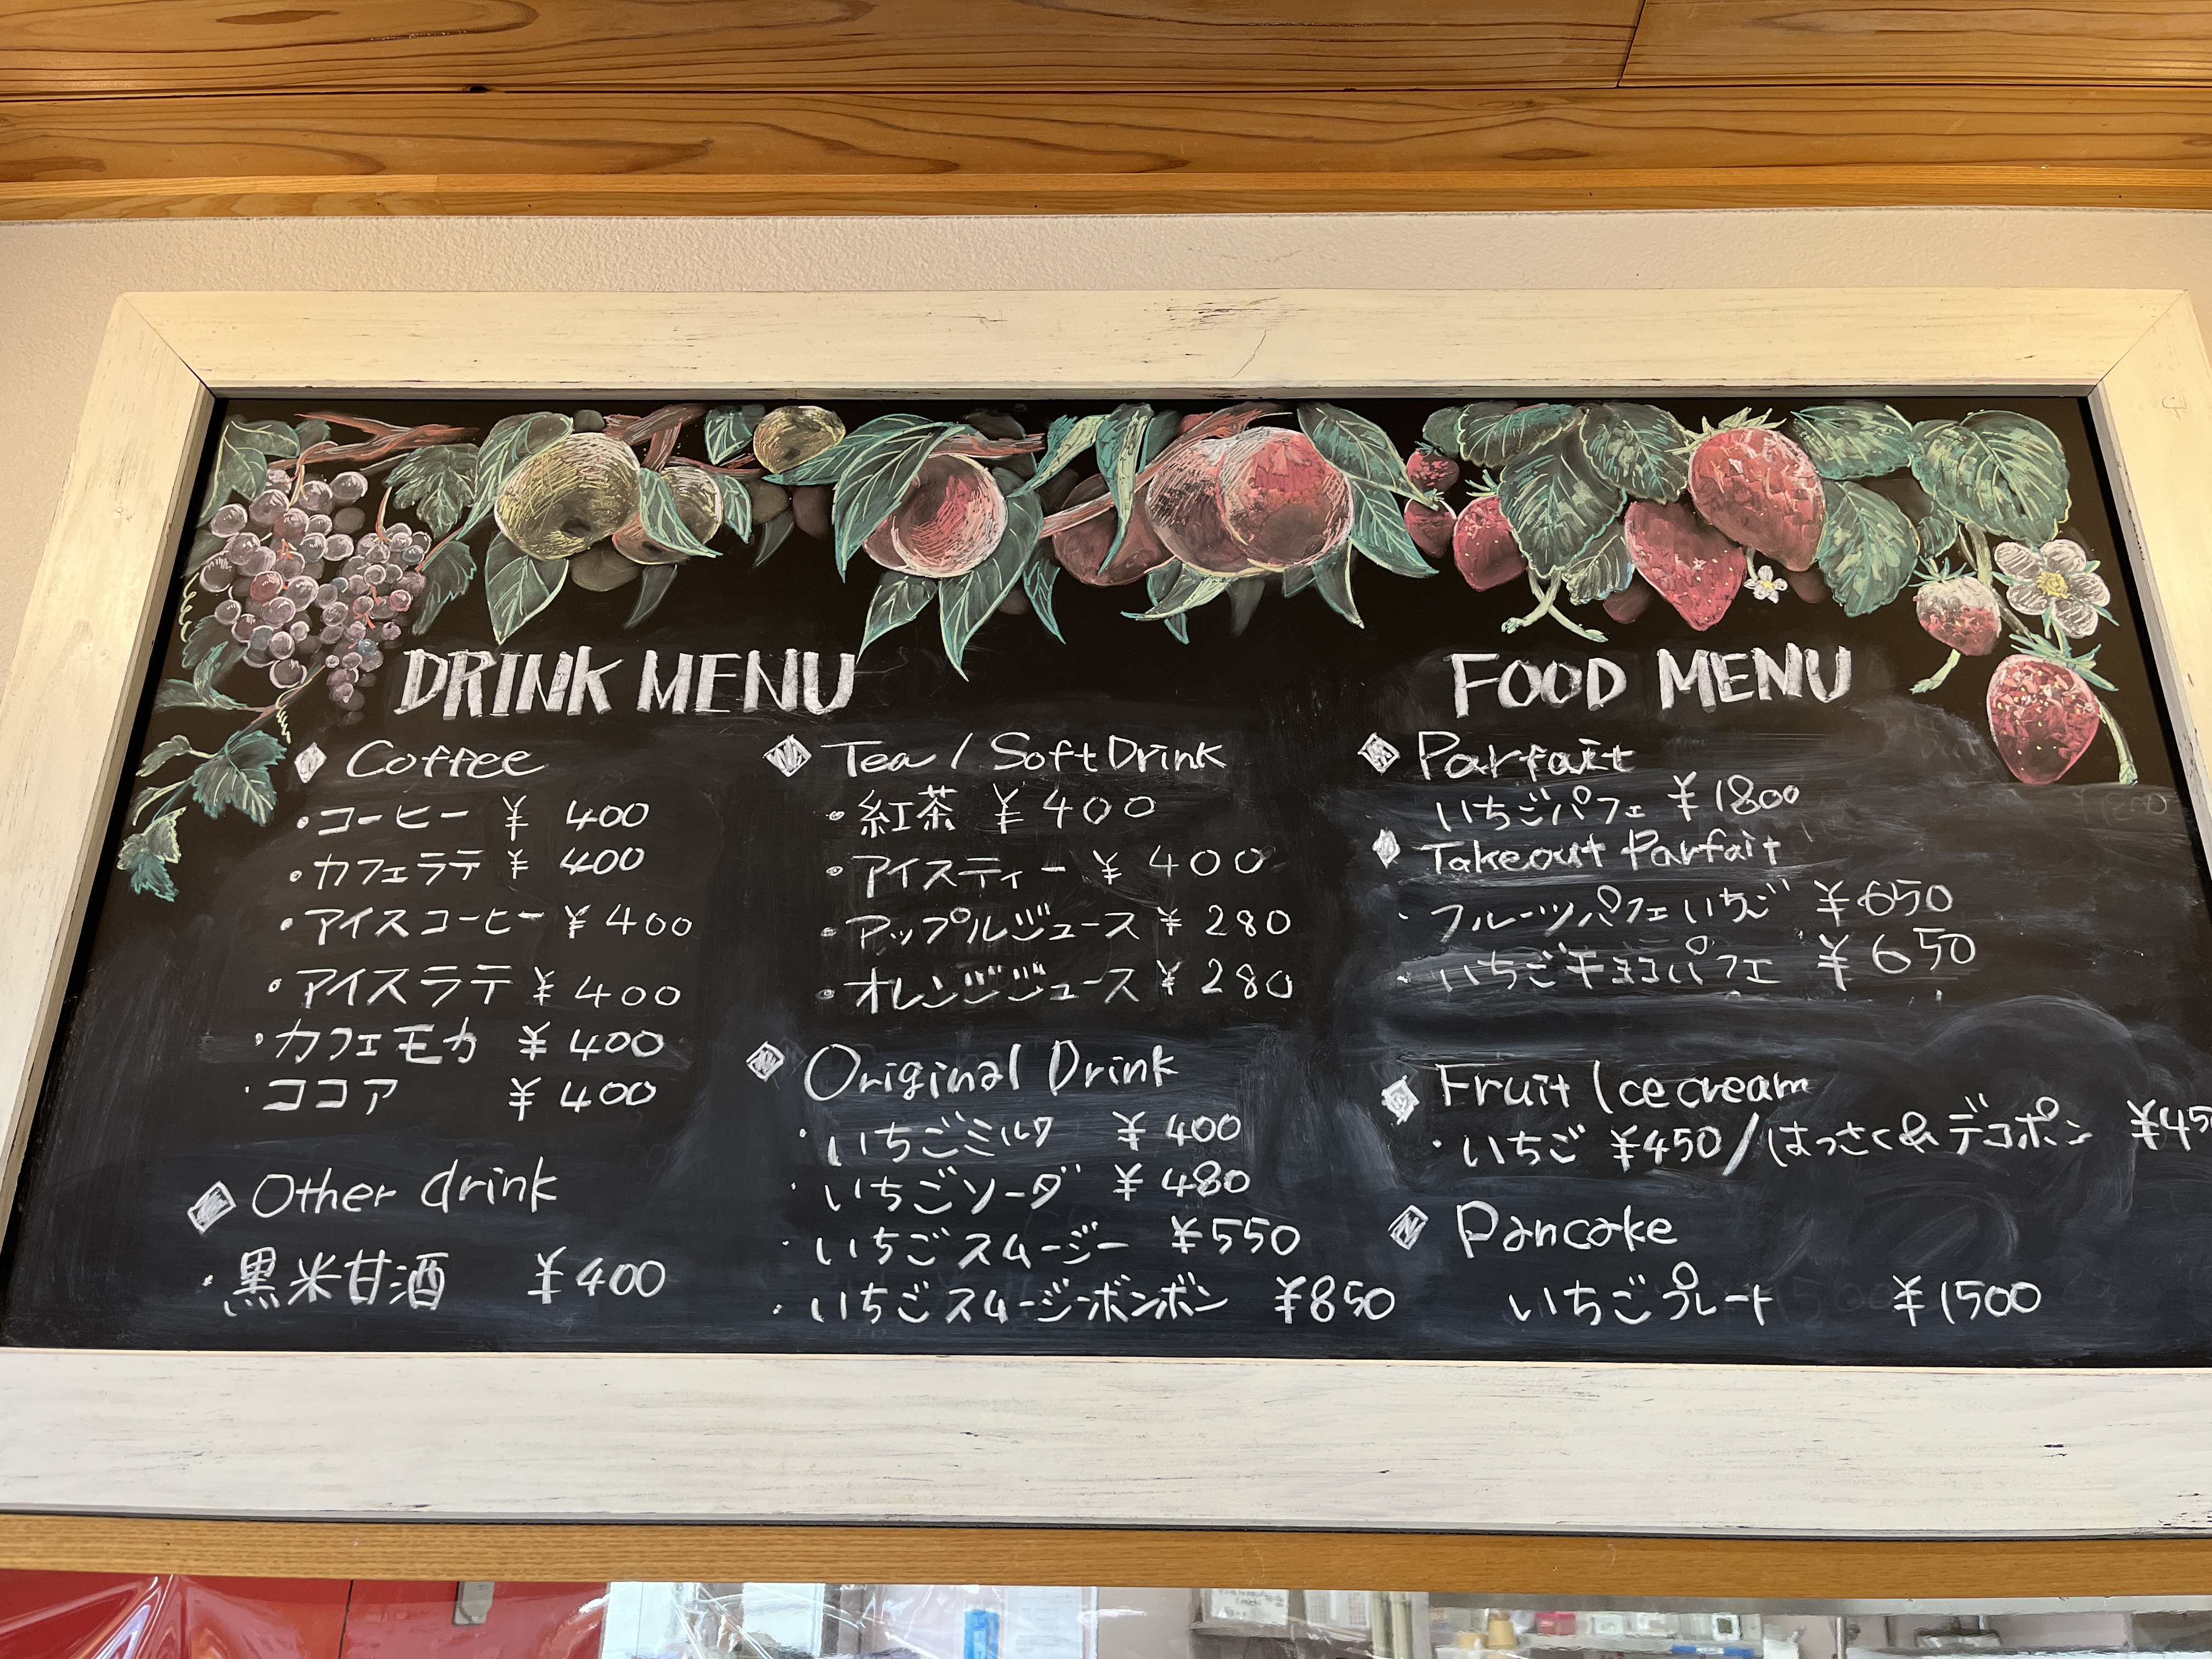 DRINK MENU
Coffee
・コーヒー ¥400
・カフェラテ ¥400
・アイスコーヒー ¥400
・アイスラテ ¥400
・カフェモカ ¥400
・ココア ¥400
Other drink
・黒米甘酒 ¥400
Tea / Soft Drink
・紅茶 ¥400
・アイスティー ¥400
・アップルジュース ¥280
・オレンジジュース ¥280
Original Drink
・いちごミルク ¥400
・いちごソーダ ¥480
・いちごスムージー ¥550
・いちごスムージーボンボン ¥850
FOOD MENU
Parfait
いちごパフェ ¥1800
Takeout Parfait
・フルーツパフェいちご ¥650
・いちごチョコパフェ ¥650
Fruit Ice cream
・いちご ¥450/はっさく&デコポン ¥45
Pancake
いちごプレート ¥1500